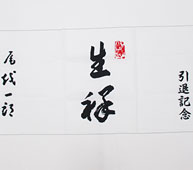 引退記念
生祥
尾越一郎